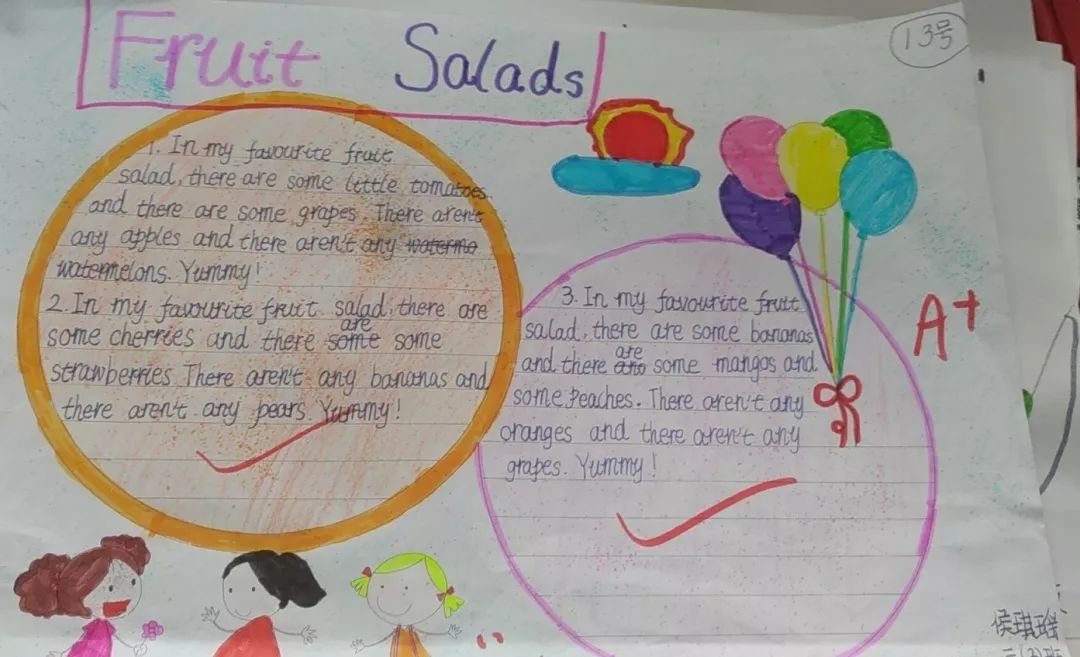 Fruit Salads
13号
1. In my favourite fruit
salad, there are some little tomatoes
and there are some grapes. There aren't
any apples and there aren't any watermo
watermelons. Yummy!
2. In my favourite fruit salad, there are
are
some cherries and there some some
strawberries. There aren't any bananas and
there aren't any pears. Yummy!
3. In my favourite fruit
salad, there are some bananas
are
and there and some mangos and
some Peaches. There aren't any
oranges and there aren't any
grapes. Yummy!
A+
侯琪